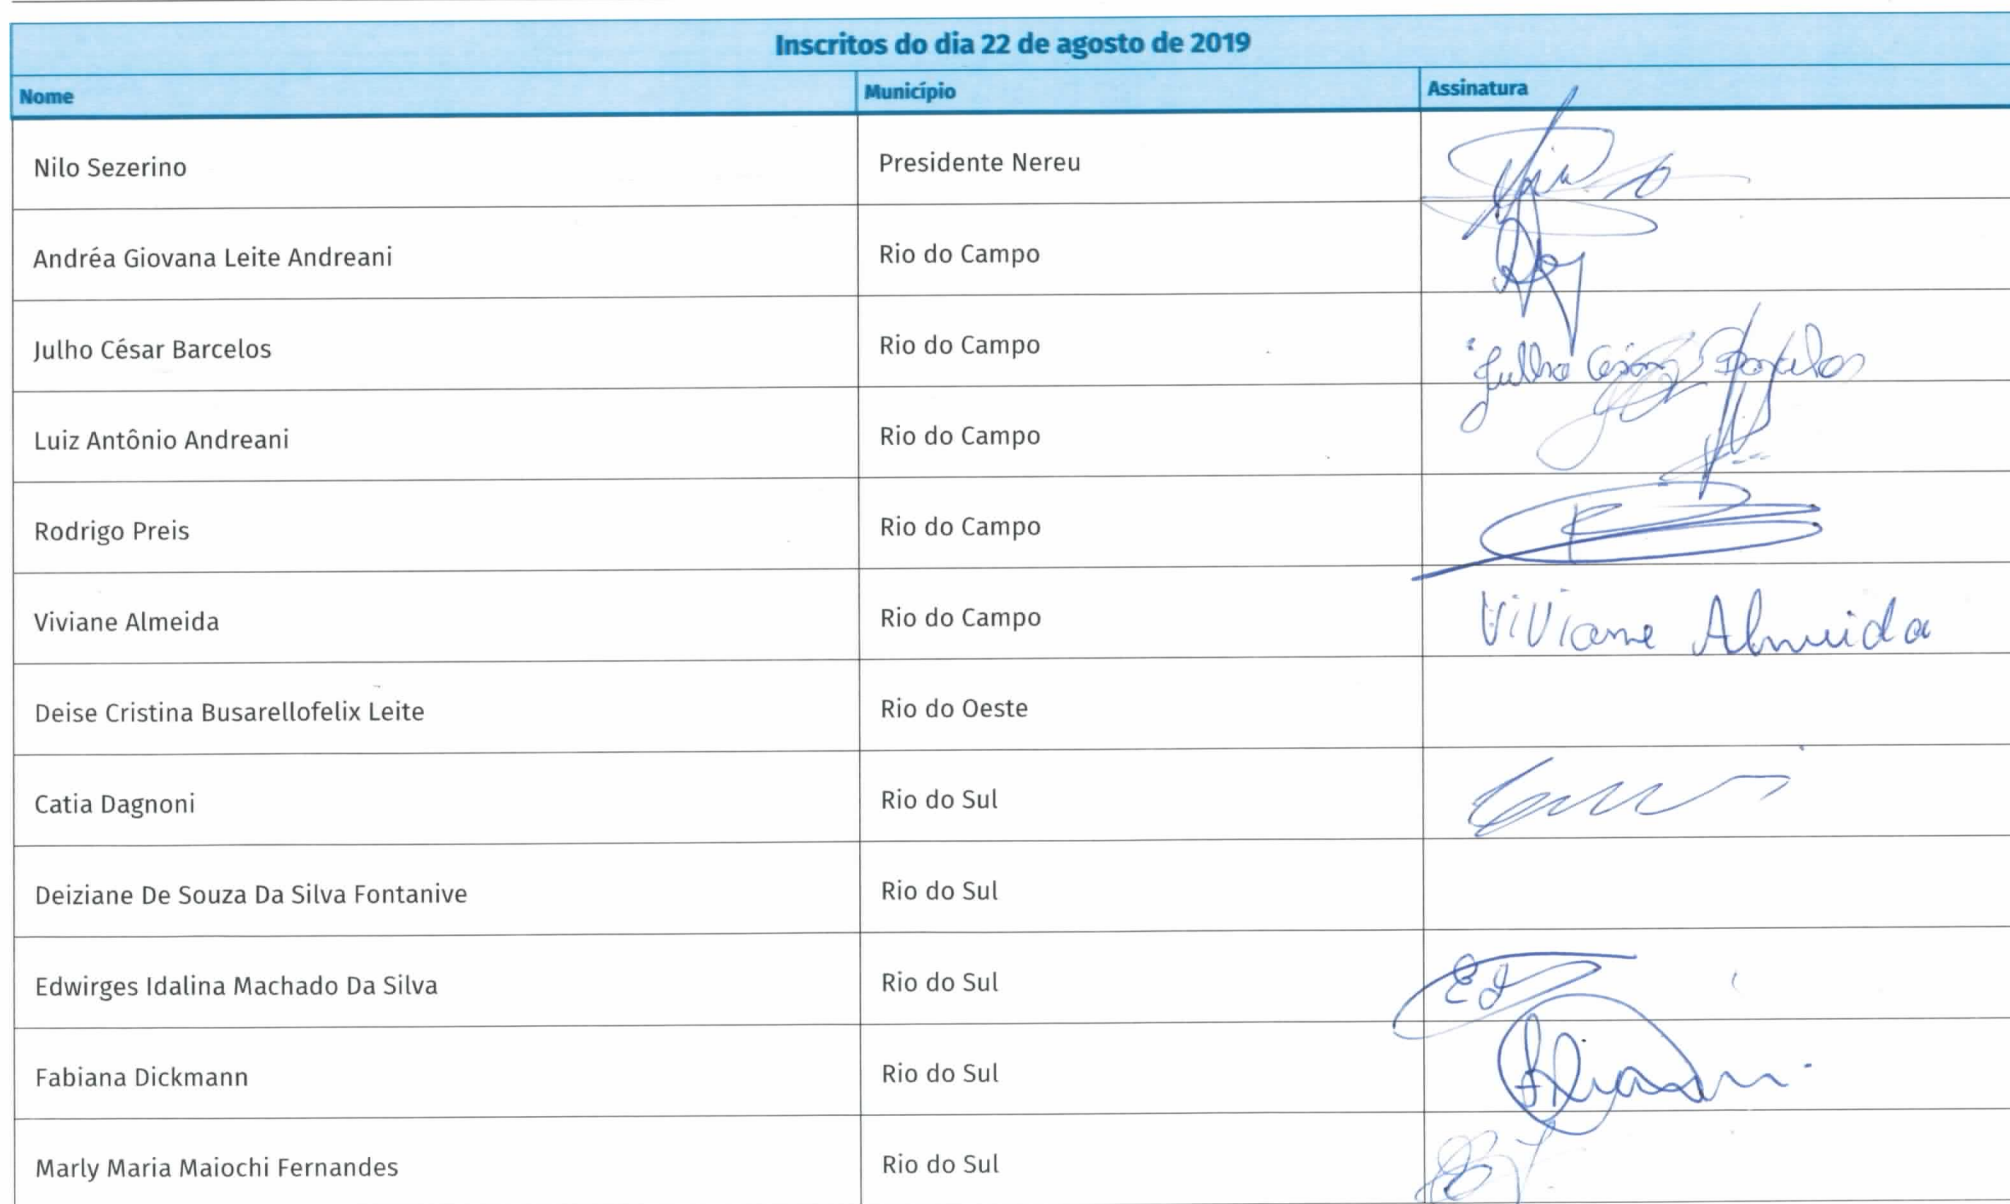 Inscritos do dia 22 de agosto de 2019
Nome Município Assinatura
Nilo Sezerino Presidente Nereu
Andréa Giovana Leite Andreani Rio do Campo
Julho César Barcelos Rio do Campo Julho César Barcelos
Luiz Antônio Andreani Rio do Campo
Rodrigo Preis Rio do Campo
Viviane Almeida Rio do Campo Viviane Almeida
Deise Cristina Busarellofelix Leite Rio do Oeste
Catia Dagnoni Rio do Sul
Deiziane De Souza Da Silva Fontanive Rio do Sul
Edwirges Idalina Machado Da Silva Rio do Sul
Fabiana Dickmann Rio do Sul
Marly Maria Maiochi Fernandes Rio do Sul